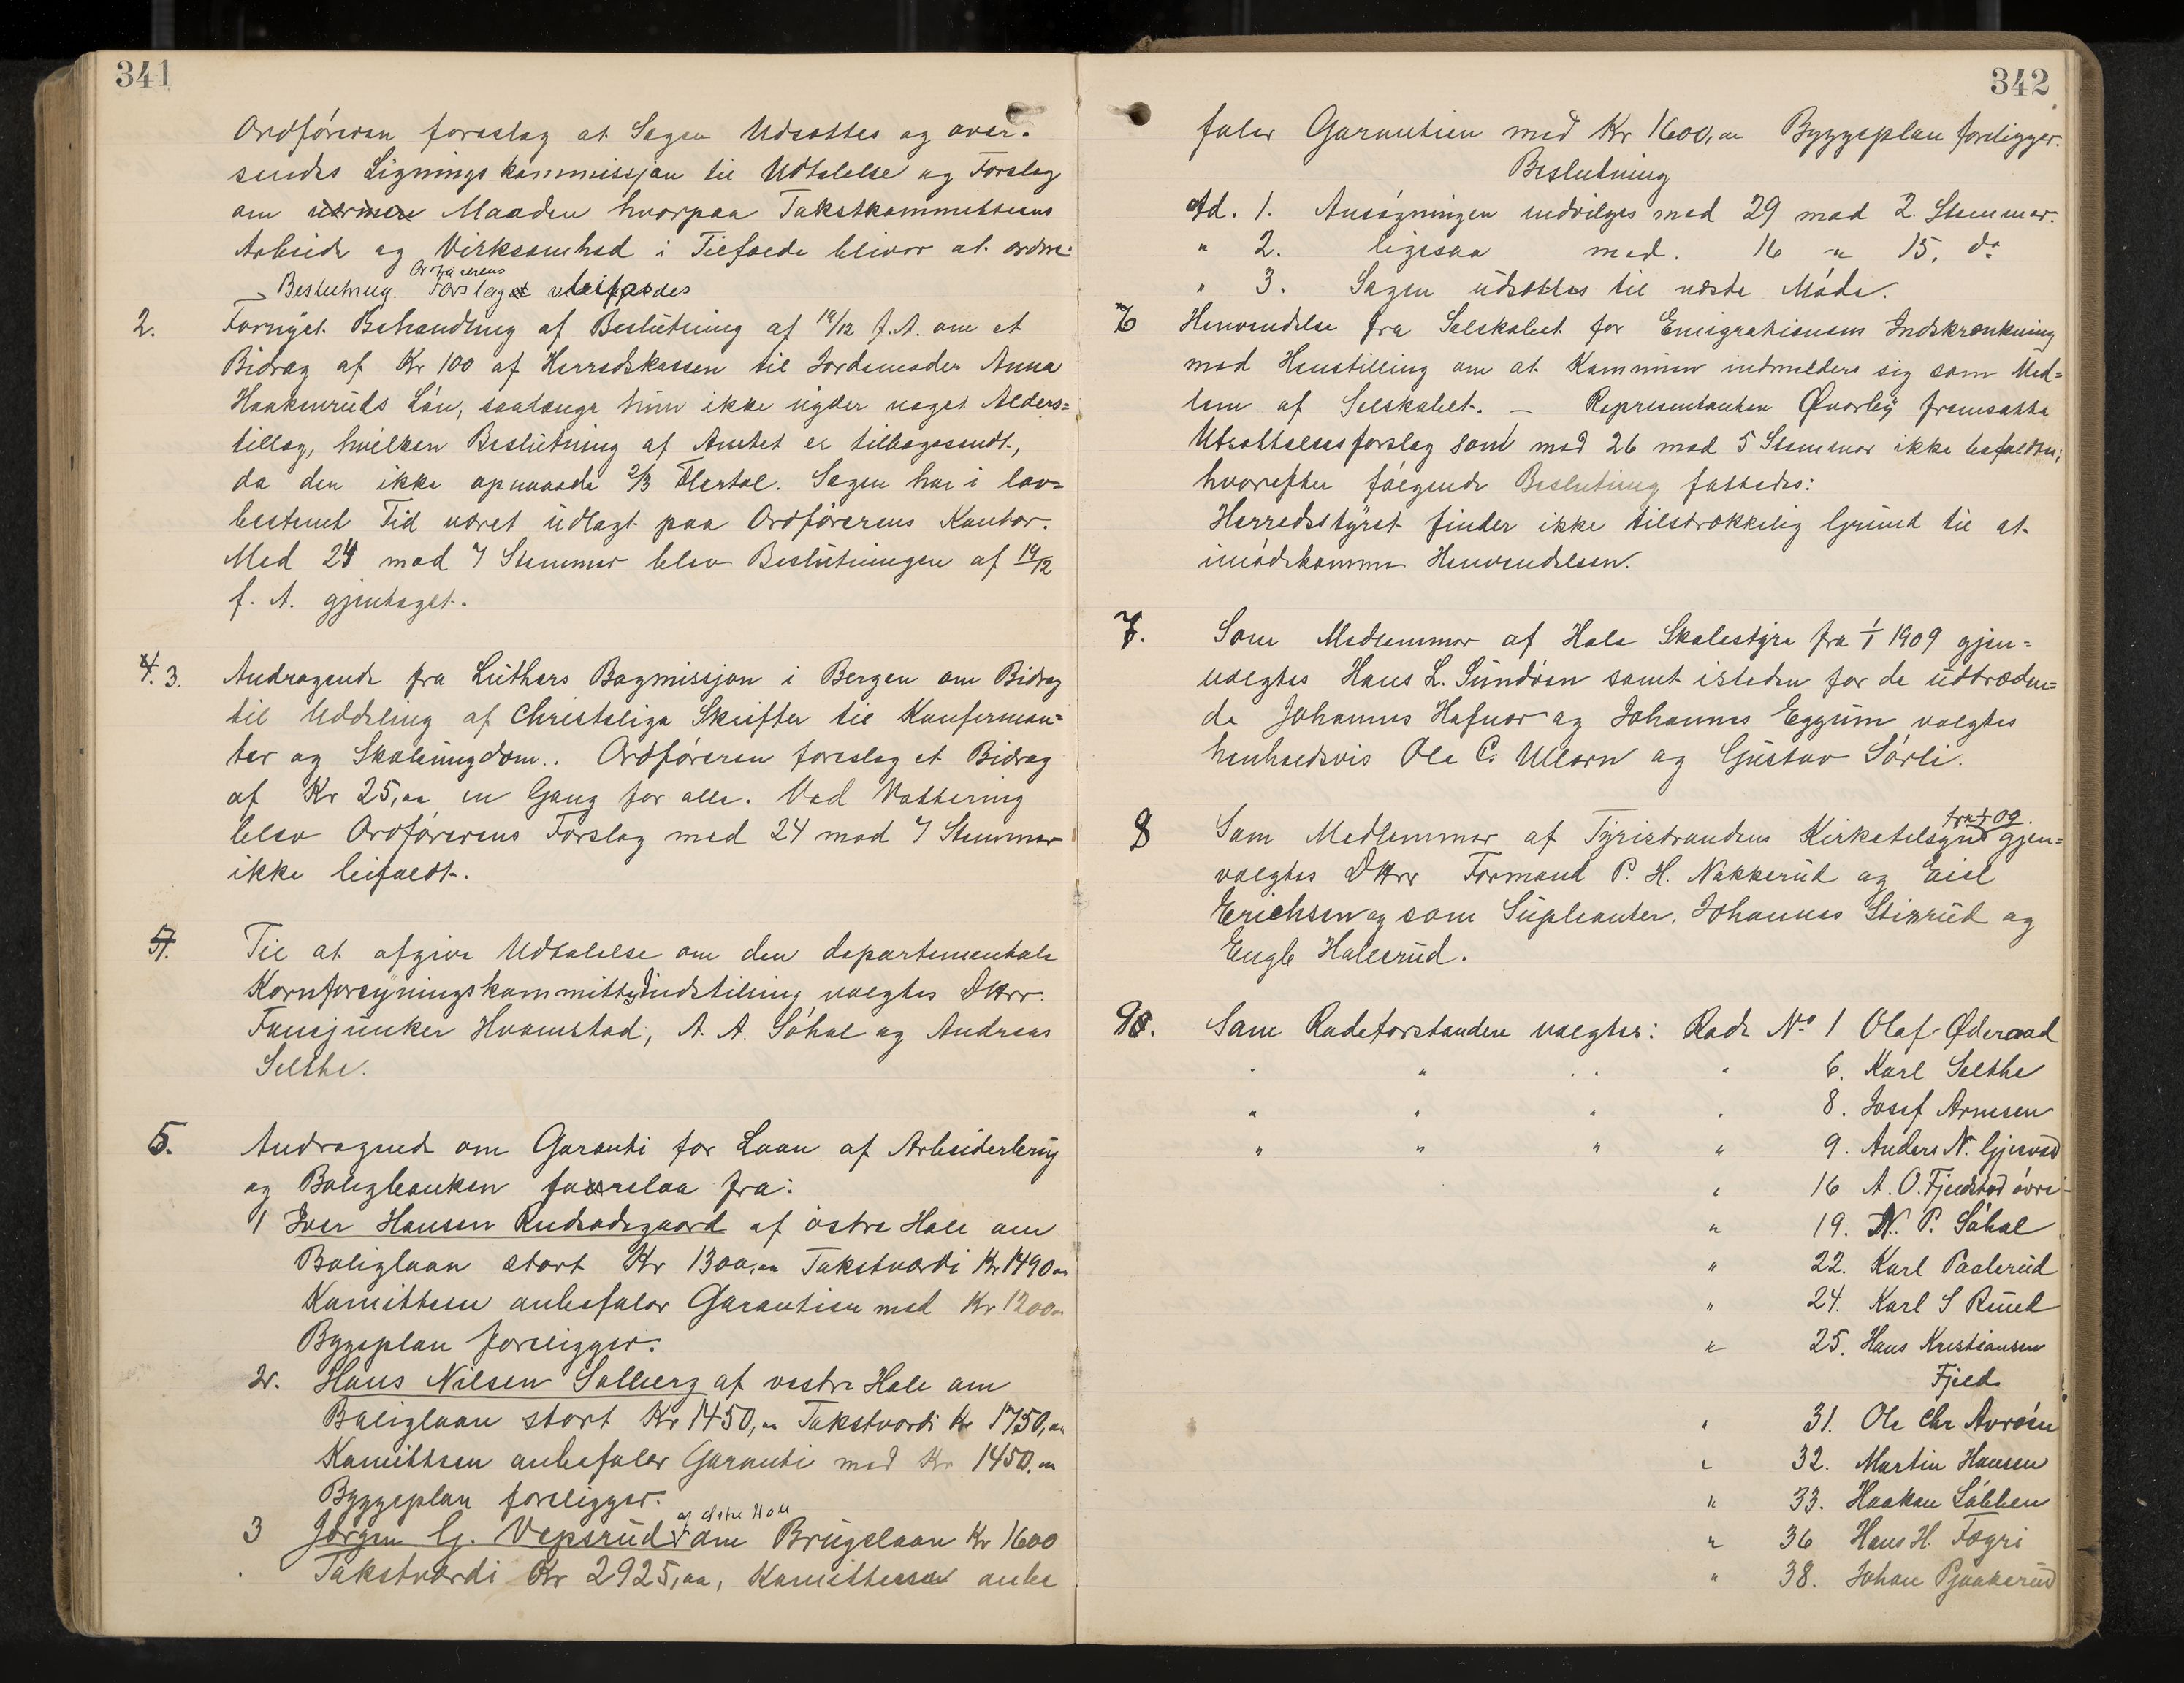 341
Ordføreren foreslog at Sagen Udsættes og over-
sendes Ligningskommissjon til Udtalelse og Forslag
om nærmere Maaden hvorpaa Takstkommitteens
Arbeide og Virksomhed i Tilfælde bliver at ordne.
Ordførerens
Beslutning. Forslaget bifaldes
2. Fornyet Behandling af Beslutning af 19/12 f. A. om et
Bidrag af Kr 100 af Herredskassen til Jordemoder Anna
Haakenruds Løn, saalænge hun ikke nyder noget Alders-
tillæg, hvilken Beslutning af Amtet er tilbagesendt,
da den ikke opnaaede 2/3 Flertal. Sagen har i lov-
bestemt Tid været udlagt paa Ordførerens Kontor.
Med 24 mod 7 Stemmer blev Beslutningen af 19/12
f. A. gjentaget.
4. 3. Andragende fra Luthers Bogmissjon i Bergen om Bidrag
til Uddeling af Christelige Skrifter til Konferman-
ter og Skoleungdom.. Ordføreren foreslog et Bidrag
af Kr 25,00 en Gang for alle. Ved Vottering
blev Ordførerens Forslag med 24 mod 7 Stemmer
ikke bifaldt.
4. Til at afgive Udtalelse om den departementale
Kornforsyningskommittes Indstilling valgtes DHrr.
Fanejunker Hvamstad, A. A. Søhol og Andreas
Selthe.
5. Andragende om Garanti for Laan af Arbeiderbrug
og Boligbanken forelaa fra:
1 Iver Hansen Rudsødegaard af østre Hole om
Boliglaan stort Kr 1300,00 Takstværdi Kr 1490 00
Komitteen anbefaler Garantien med Kr 1200 00
Bygeplan foreligger.
2. Hans Nilsen Solberg af vestre Hole om
Boliglaan stort Kr 1450,00 Takstværdi Kr 1750,00
Komitteen anbefaler Garanti med Kr 1450,00
Byggeplan foreligger.
af østre Hole
3 Jørgen G. Vepsrud om Brugslaan Kr 1600
Takstværdi Kr 2925,00, Komitteen anbe
342
faler Garantien med Kr 1600,00 Byggeplan foreligger.
Beslutning
Ad. 1. Ansøgningen indvilges med 29 mod 2. Stemmer.
" 2. ligesaa med. 16 " 15, do
" 3. Sagen udsættes til næste Møde.
6 Henvendelse fra Selskabet for Emigrationens Indskrænkning
med Henstilling om at Kommunen indmelder sig som Med-
lem af Selskabet. — Repræsentanten Qvarby fremsatte
Udsættelsesforslag som med 26 mod 5 Stemmer ikke bifaldtes;
hvorefter følgende Beslutning fattedes:
Herredsstyret finder ikke tilstrækkelig Grund til at
imødekomme Henvendelsen.
7. Som Medlemmer af Hole Skolestyre fra 1/1 1909 gjen-
valgtes Hans L. Sundøen samt isteden for de udtræden-
de Johannes Hafnor og Johannes Eggum valgtes
henholdsvis Ole C. Ulleren og Gustav Sørli.
fra 1/1 09.
8 Som Medlemmer af Tyristrandens Kirketilsyn gjen-
valgtes DHrr Formand P. H. Nakkerud og Eiel
Erichsen og som Supleanter, Johannes Stixrud og
Engb Halesrud.
9. Som Rodeforstandere valgtes: Rode No 1 Olaf Øderaad
" " " " 6. Karl Selthe
" " " " 8. Josef Arnesen
" " " " 9. Anders N. Gjesvad
" 16 A. O. Fjeldstad øvre
" 19. N. P. Søhol
" 22. Karl Paalerud
" 24. Karl S Ruud
" 25. Hans Kristiansen
Fjeld
" 31. Ole Chr Avrøen
" 32. Martin Hansen
" 33. Haakon Løkken
" 36 Hans H. Fægri
" 38. Johan Pjaakerud